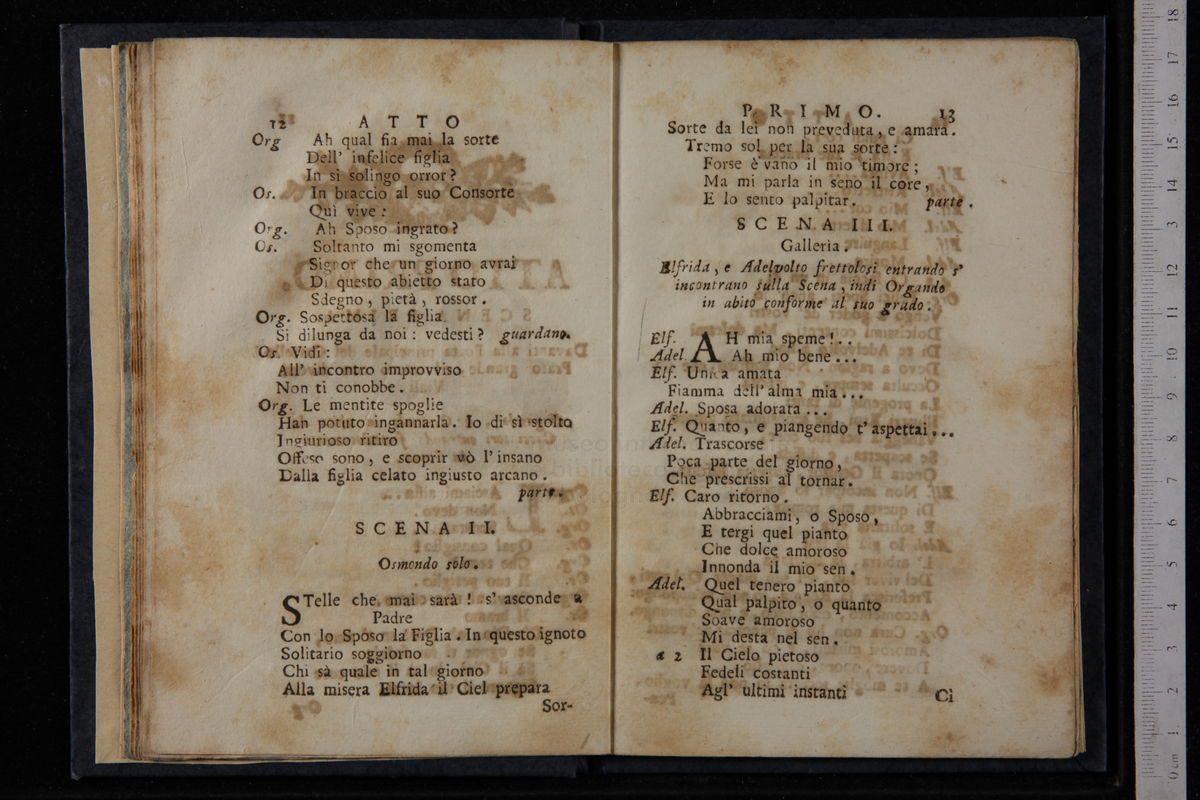 12 ATTO
Org Ah qual fia mai la sorte
Dell' infelice figlia
In sì solingo orror?
Os. In braccio al suo Consorte
Quì vive:
Org. Ah Sposo ingrato?
Os. Soltanto mi sgomenta
Signor che un giorno avrai
Di questo abietto stato
Sdegno, pietà, rossor.
Org. Sospettosa la figlia
Si dilunga da noi: vedesti? guardano.
Os. Vidi:
All' incontro improvviso
Non ti conobbe.
Org. Le mentite spoglie
Han potuto ingannarla. Io di sì stolto
Ingiurioso ritiro
Offeso sono, e scoprir vò l'insano
Dalla figlia celato ingiusto arcano.
parte.
SCENA II.
Osmondo solo.
STelle che mai sarà! s' asconde a
Padre
Con lo Sposo la Figlia. In questo ignoto
Solitario soggiorno
Chi sà quale in tal giorno
Alla misera Elfrida il Ciel prepara
Sor-
PRIMO. 13
Sorte da lei non preveduta, e amara.
Tremo sol per la sua sorte:
Forse è vano il mio timore;
Ma mi parla in seno il core,
E lo sento palpitar. parte.
SCENA III.
Galleria.
Elfrida, e Adelvolto frettolosi entrando s'
incontrano sulla Scena, indi Orgando
in abito conforme al suo grado.
Elf. AH mia speme!..
Adel Ah mio bene...
Elf. Unica amata
Fiamma dell' alma mia...
Adel. Sposa adorata...
Elf. Quanto, e piangendo t' aspettai...
Adel. Trascorse
Poca parte del giorno,
Che prescrissi al tornar.
Elf. Caro ritorno.
Abbracciami, o Sposo,
E tergi quel pianto
Che dolce amoroso
Innonda il mio sen.
Adel. Quel tenero pianto
Qual palpito, o quanto
Soave amoroso
Mi desta nel sen.
a 2 Il Cielo pietoso
Fedeli costanti
Agl' ultimi instanti
Ci
0 cm 1 2 3 4 5 6 7 8 9 10 11 12 13 14 15 16 17 18